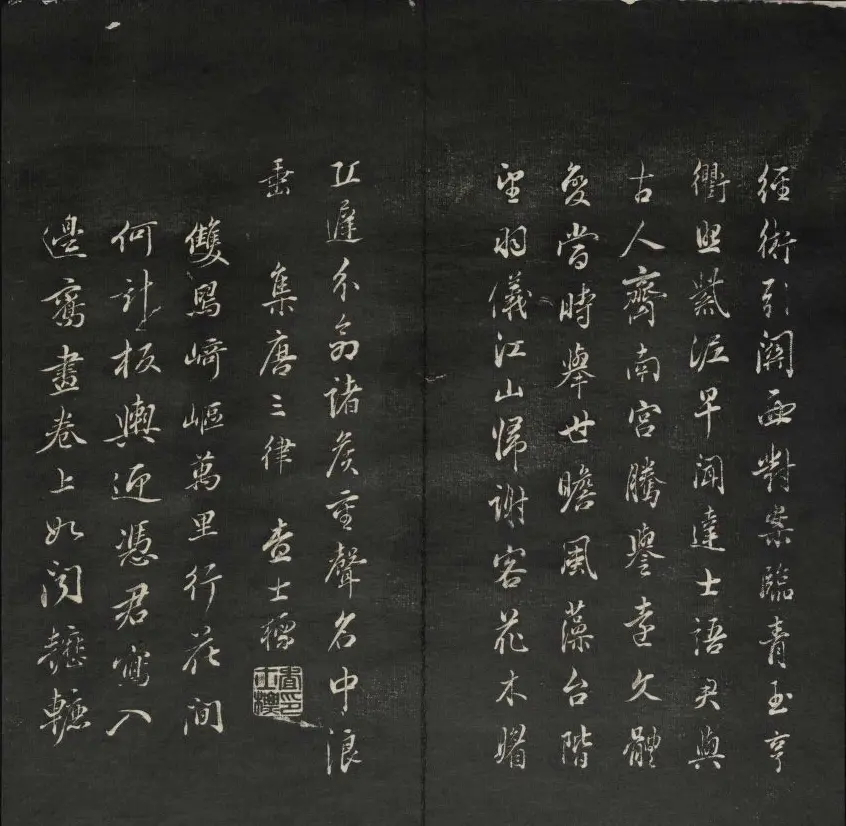 經術引關西對案臨青玉亨
衢照紫泥早聞達士語君與
古人齊南宮騰譽走文體
變當時舉世瞻風藻台階
望羽儀江山歸謝客花木媚
丘遲不前諸侯重聲名中浪
垂 集唐三律 查士標
雙鳧崎嶇萬里行花間
何計板輿迎憑君寫入
邊鸞畫卷上如聞轣轆